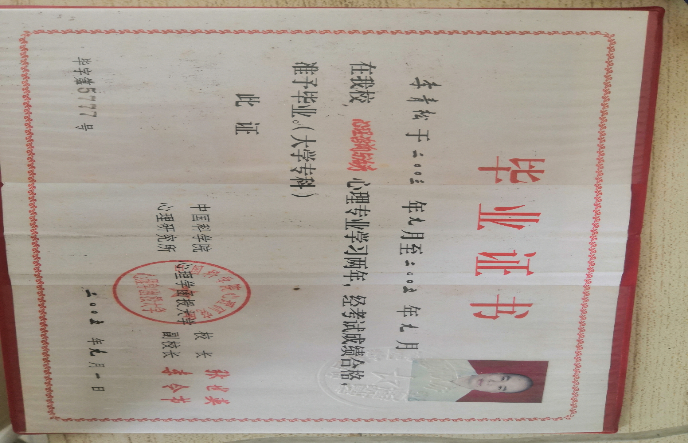 毕业证书
李青松于二〇〇三年九月至二〇〇五年九月
在我校,心理专业学习两年,经考试成绩合格,
准予毕业。(大学专科)
此证
中国科学院
心理研究所
心理学函授大学
校长
副校长
二〇〇五年九月一日
毕字第5777号